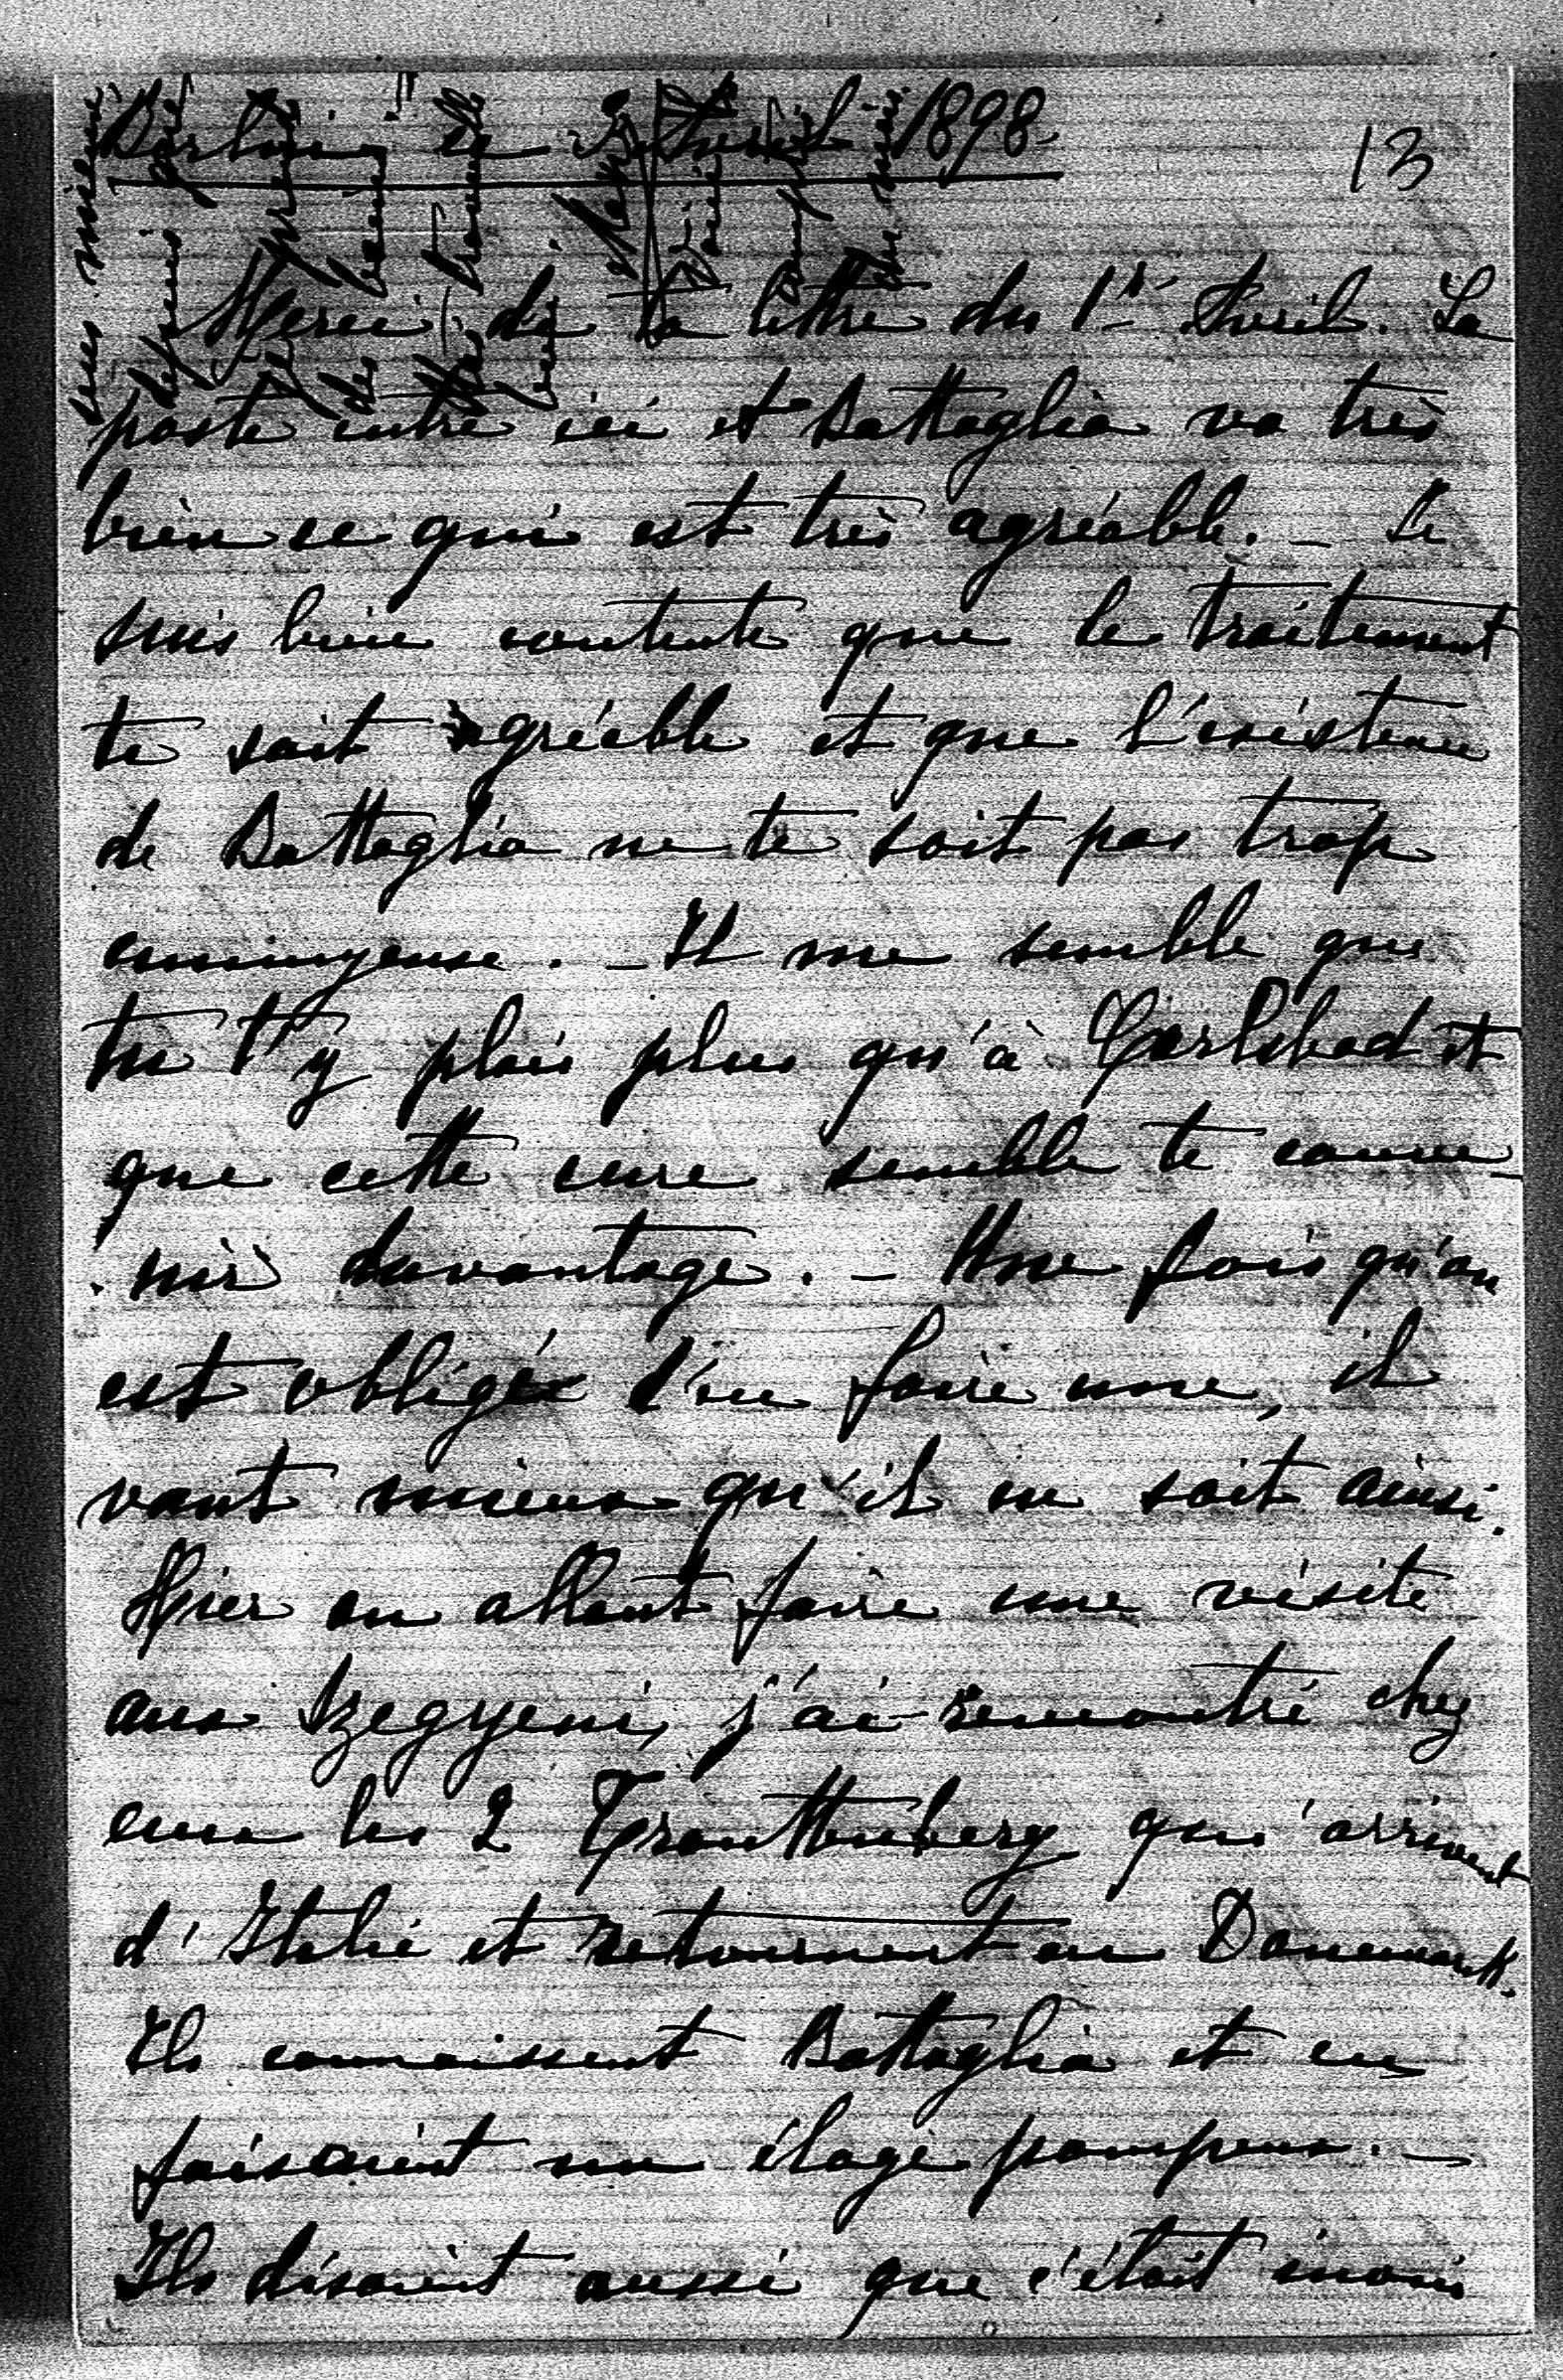 Berlin le Avril 1898.
13
Merci de ta lettre du 1r Avril. La
poste entre ici et Battaglia va très
bien ce qui est très agréable. _ Je
suis bien contente que le traitement
te soit agréable et que l'existence
de Battaglia ne te soit pas trop
ennuyeuse. _ Il me semble que
tu t'y plais plus qu'à Carlsbad et
que cette cure semble te conve-
nir davantage. _ Une fois qu'on
est obligé d'en faire une, il
vaut mieux qu'il en soit ainsi.
Hier en allant faire une visite
aux Szegyeni, j'ai rencontré chez
eux les 2 Trauttenberg qui arrivent
d'Italie et retournent en Danemark.
Ils connaissent Battaglia et en
faisaient un éloge pompeux. _
Ils disaient aussi que c'était inoui